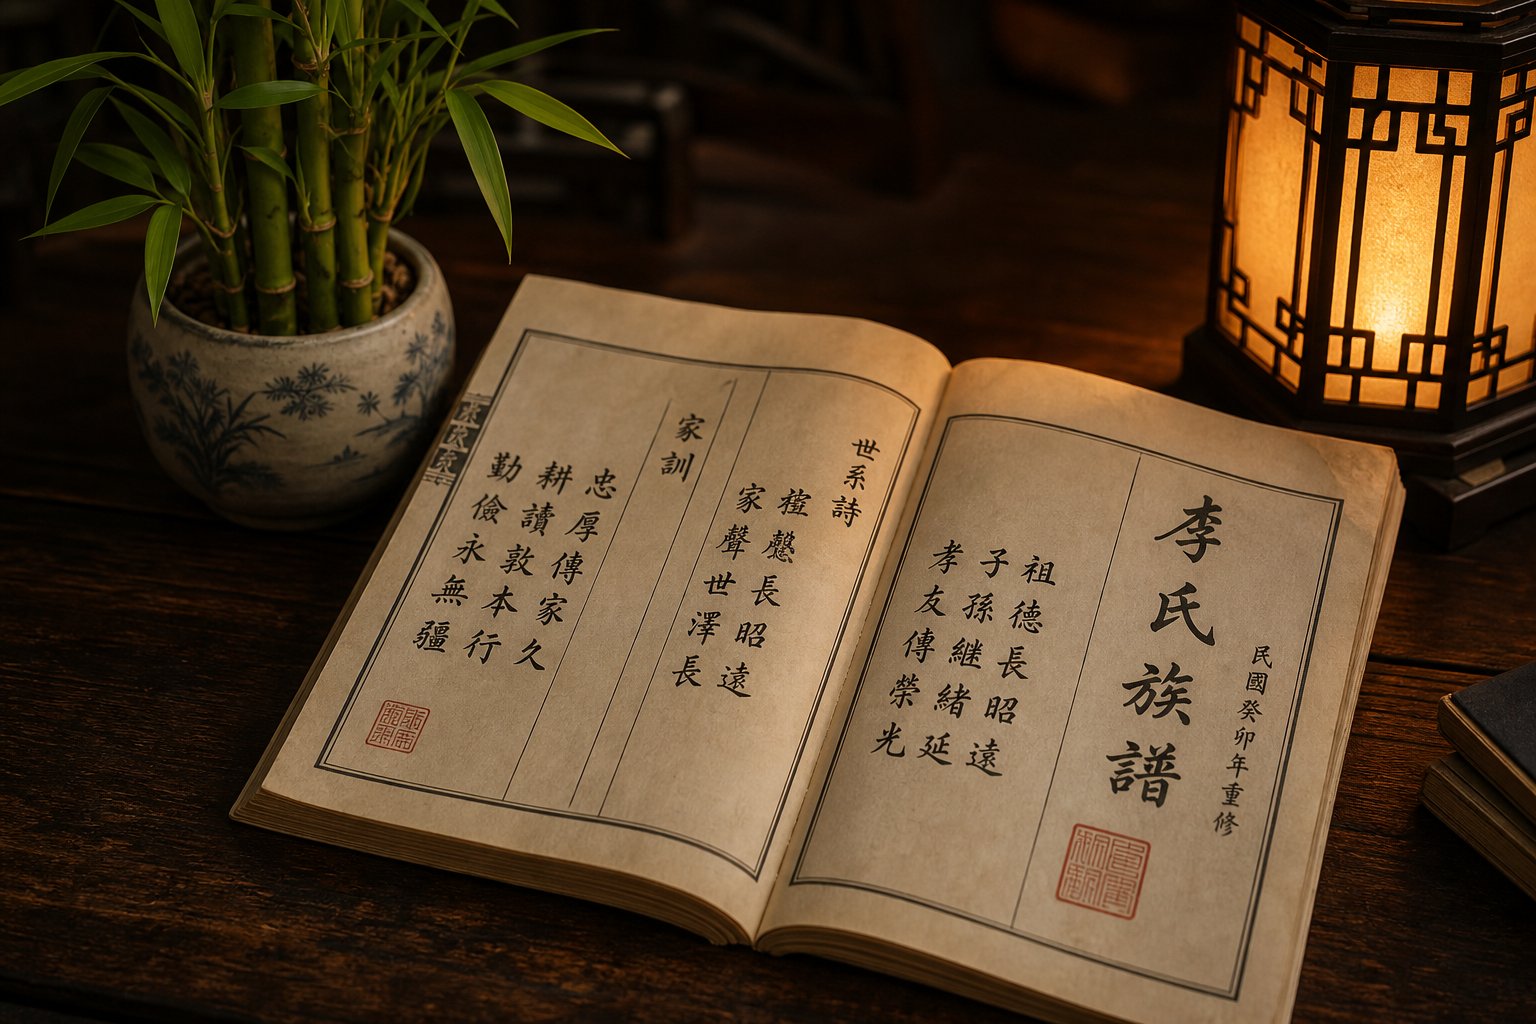 民國癸卯年重修
李氏族譜
祖德長昭遠
子孫繼緒延
孝友傳榮光
世系詩
長昭遠
家聲世澤長
家訓
忠厚傳家久
耕讀敦本行
勤儉永無疆